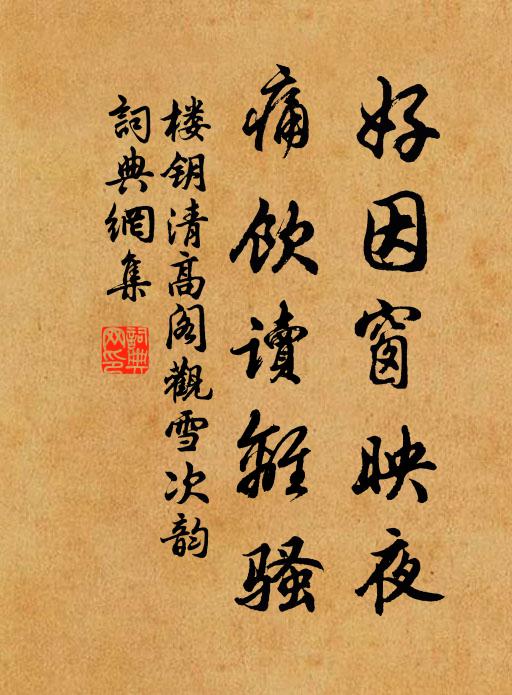 好因窗映夜
痛飲读離騷
楼钥清高阁觀雪次韵
詞典網集
詞典网印